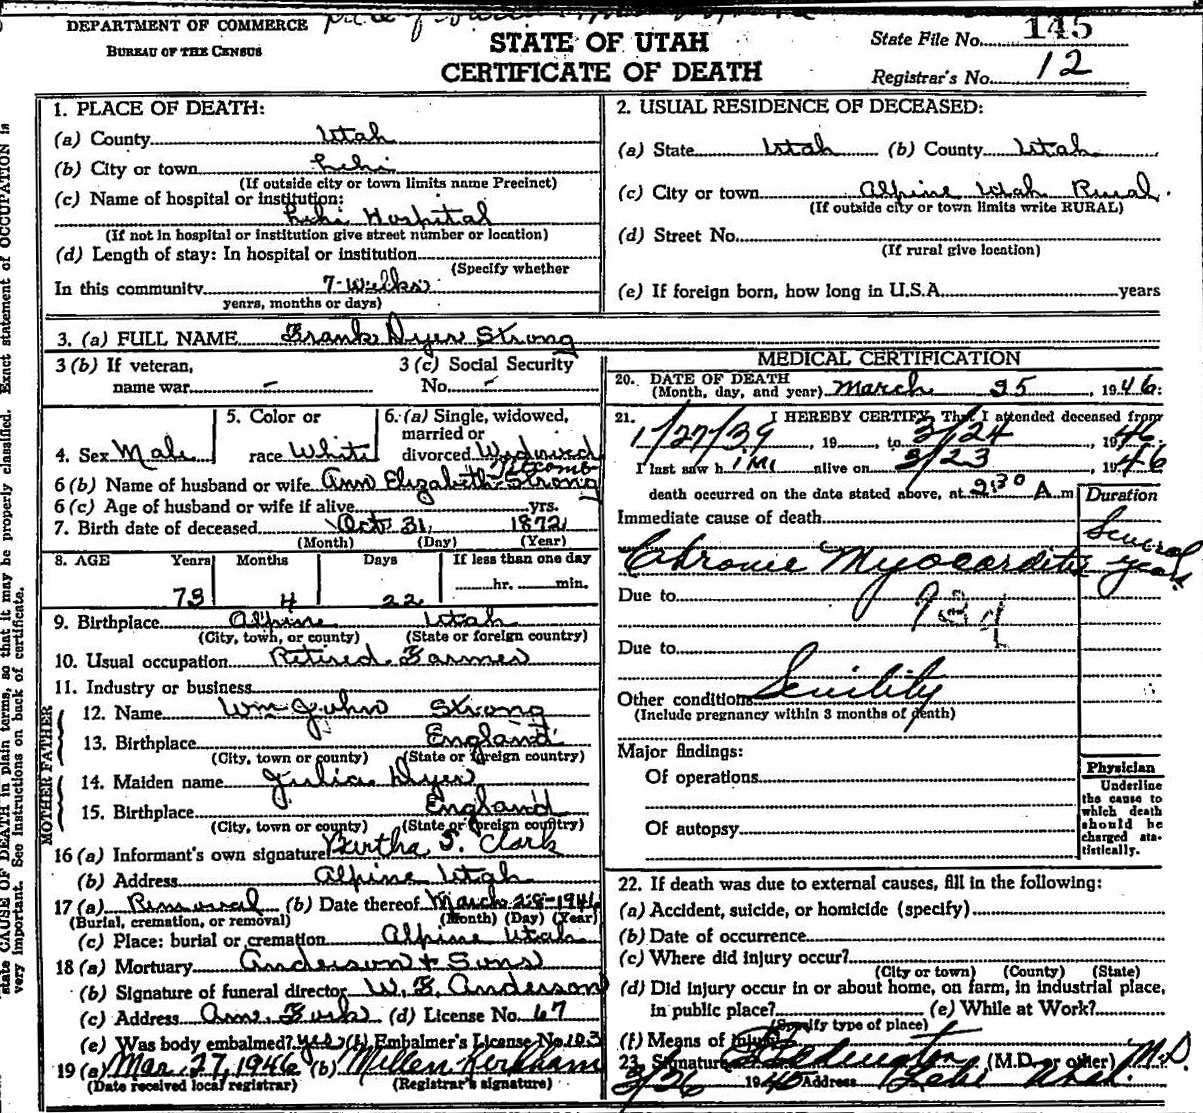 DEPARTMENT OF COMMERCE
BUREAU OF THE CENSUS
STATE OF UTAH
CERTIFICATE OF DEATH
State File No. 145
Registrar's No. 12
state CAUSE OF DEATH in plain terms, so that it may be properly classified. Exact statement of OCCUPATION is
very important. See instructions on back of certificate.
1. PLACE OF DEATH:
(a) County Utah
(b) City or town Lehi
(If outside city or town limits name Precinct)
(c) Name of hospital or institution:
Lehi Hospital
(If not in hospital or institution give street number or location)
(d) Length of stay: In hospital or institution
(Specify whether
In this community 7-Weeks
years, months or days)
2. USUAL RESIDENCE OF DECEASED:
(a) State Utah (b) County Utah
(c) City or town Alpine Utah Rural.
(If outside city or town limits write RURAL)
(d) Street No.
(If rural give location)
(e) If foreign born, how long in U.S.A. years
3. (a) FULL NAME Frank Dyer Strong
3 (b) If veteran, name war -
3 (c) Social Security No. -
4. Sex Male
5. Color or race White
6. (a) Single, widowed, married or divorced Widowed
6 (b) Name of husband or wife Ann Elizabeth Titcomb Strong
6 (c) Age of husband or wife if alive yrs.
7. Birth date of deceased Oct. 31, 1872
(Month) (Day) (Year)
8. AGE Years Months Days If less than one day
73 4 22 hr. min.
9. Birthplace Alpine Utah
(City, town, or county) (State or foreign country)
10. Usual occupation Retired Farmer
11. Industry or business
FATHER
12. Name Wm John Strong
13. Birthplace England
(City, town or county) (State or foreign country)
MOTHER
14. Maiden name Julia Dyer
15. Birthplace England
(City, town or county) (State or foreign country)
16 (a) Informant's own signature Bertha S. Clark
(b) Address Alpine Utah
17 (a) Removal (b) Date thereof March 28-1946
(Burial, cremation, or removal) (Month) (Day) (Year)
(c) Place: burial or cremation Alpine Utah
18 (a) Mortuary Anderson & Sons
(b) Signature of funeral director W. E. Anderson
(c) Address Am. Fork (d) License No. 67
(e) Was body embalmed? yes (f) Embalmer's License No. 103
19 (a) Mar. 27, 1946 (b) Millen Kirkham
(Date received local registrar) (Registrar's signature)
MEDICAL CERTIFICATION
20. DATE OF DEATH
(Month, day, and year) March 25, 1946.
21. I HEREBY CERTIFY, That I attended deceased from
1/27/39, 19 , to 3/24, 1946.
I last saw him alive on 3/23, 1946
death occurred on the date stated above, at 9:30 A m
Duration
Immediate cause of death
Chronic Myocarditis Several years
Due to
Due to
Other conditions Senility
(Include pregnancy within 3 months of death)
Major findings:
Of operations
Of autopsy
Physician
Underline
the cause to
which death
should be
charged sta-
tistically.
22. If death was due to external causes, fill in the following:
(a) Accident, suicide, or homicide (specify)
(b) Date of occurrence
(c) Where did injury occur?
(City or town) (County) (State)
(d) Did injury occur in or about home, on farm, in industrial place,
in public place? (e) While at Work?
(Specify type of place)
(f) Means of injury
23. Signature (M.D. or other) M.D.
3/26 1946 Address Lehi Utah.